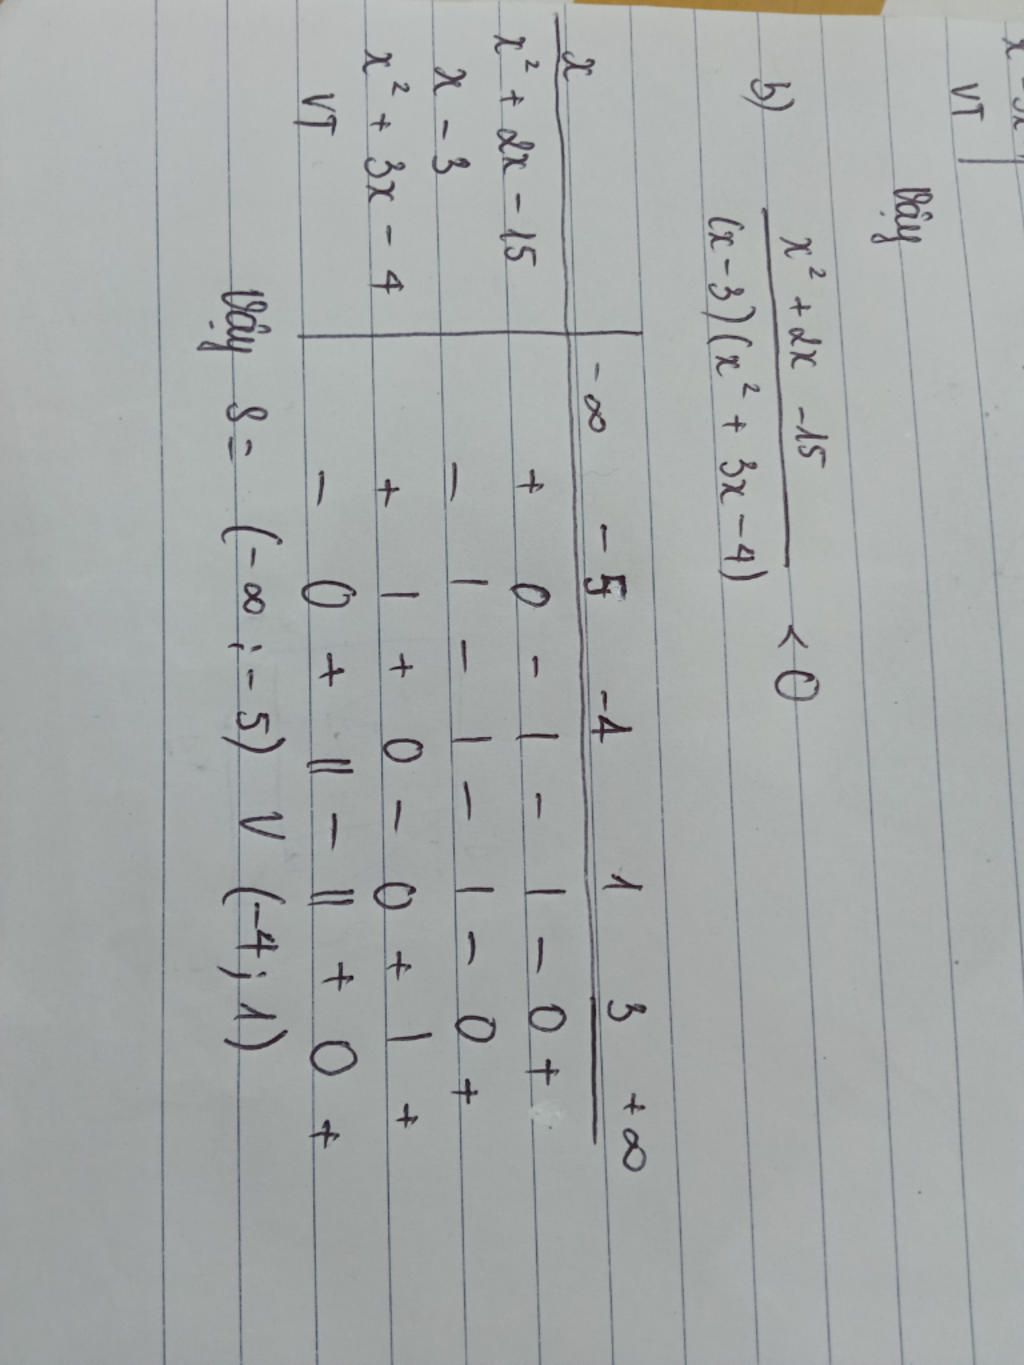 VT
Vậy
b) x² + 2x - 15
(x - 3)(x² + 3x - 4) < 0
x -∞ -5 -4 1 3 +∞
x² + 2x - 15 + 0 - | - | - 0 +
x - 3 - | - | - | - 0 +
x² + 3x - 4 + | + 0 - 0 + | +
VT - 0 + || - || + 0 +
Vậy S = (-∞; -5) V (-4; 1)